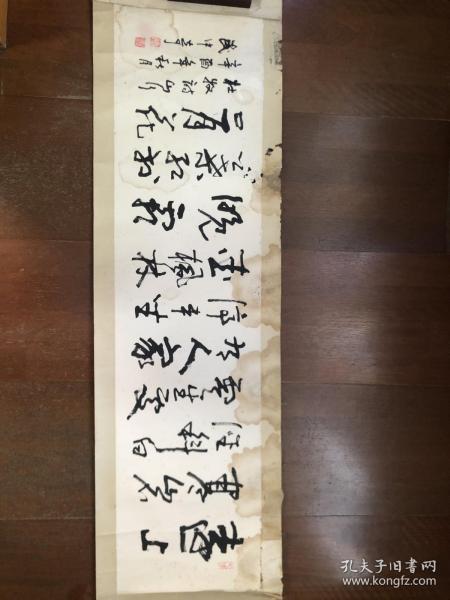 远上
寒山石
径斜白
云生处
有人家
停车坐
爱枫林
晚霜
叶红于
二月花
杜牧诗山行
辛酉年秋月
孔夫子旧书网
www.kongfz.com